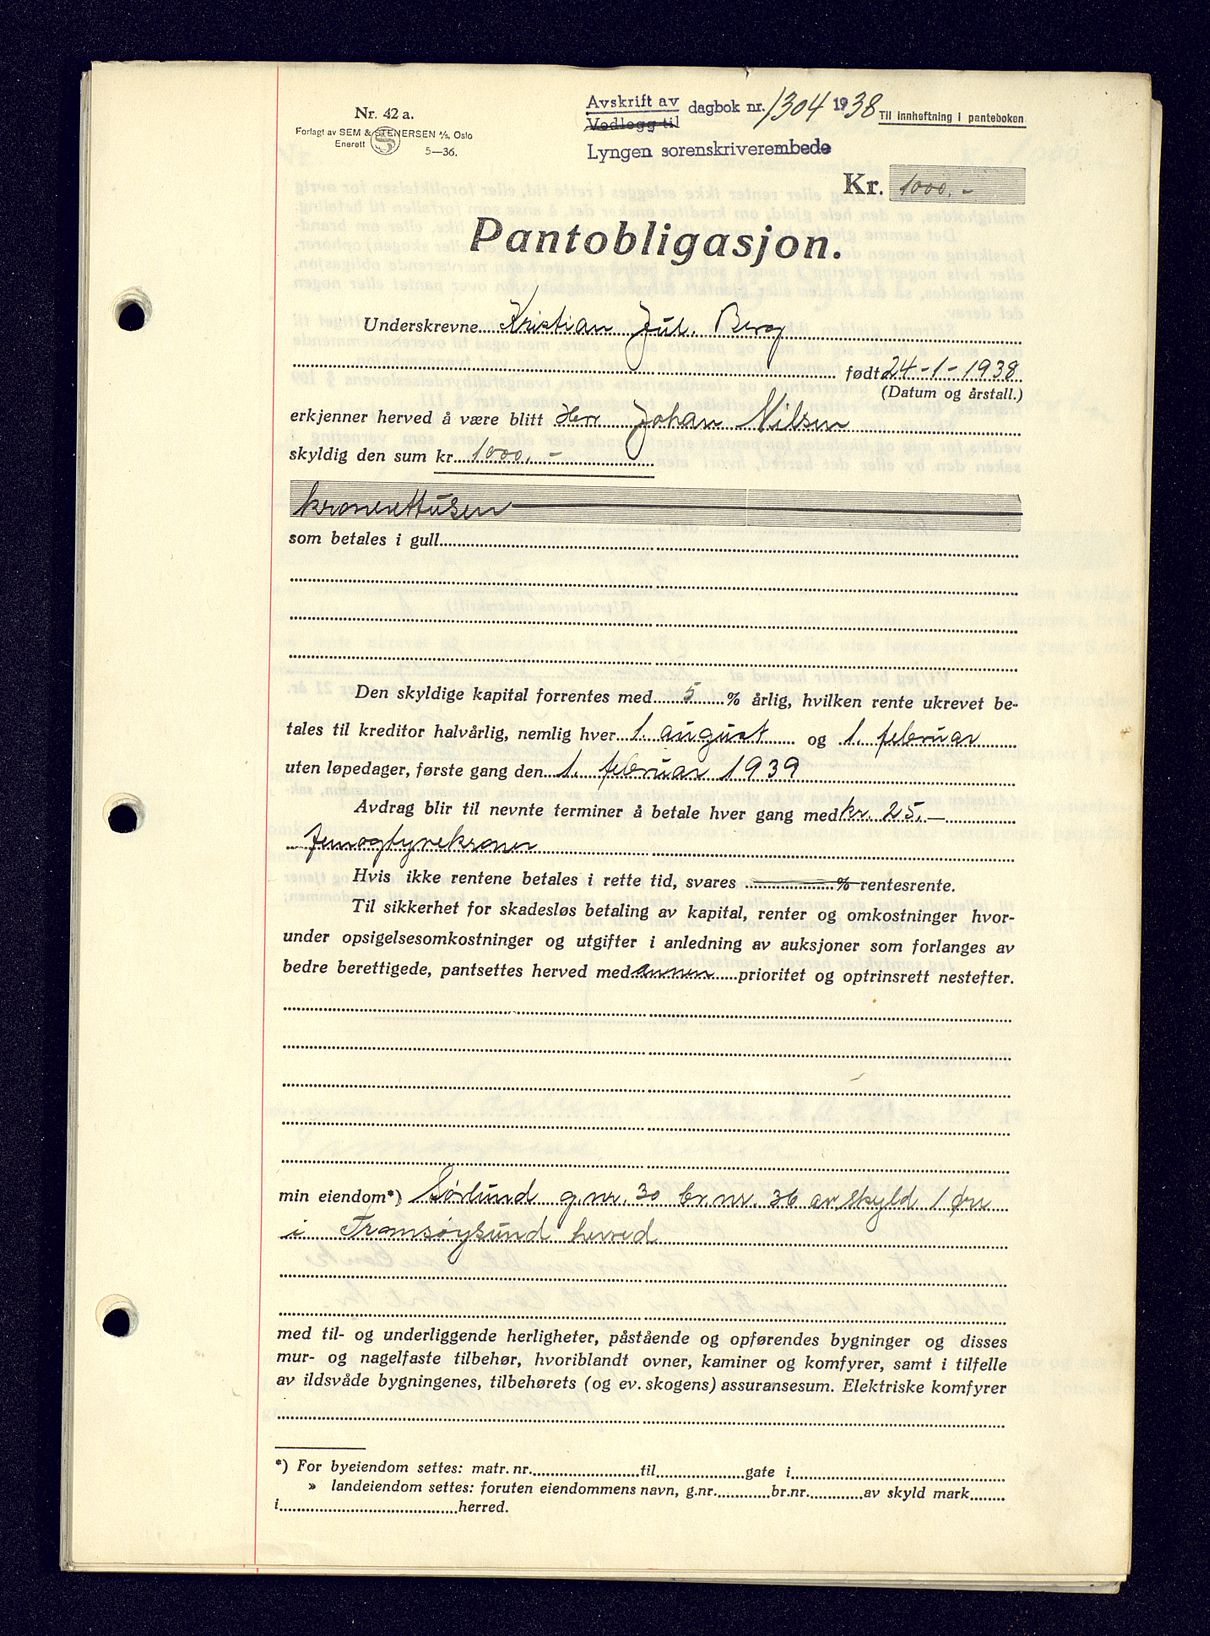 Nr. 42 a.
Forlagt av SEM & STENERSEN A/S, Oslo
Enerett 5—36.
Avskrift av dagbok nr. 1304 1938 Til innheftning i panteboken
Vedlegg til
Lyngen sorenskriverembede
Kr. 1000.-
Pantobligasjon.
Underskrevne Kristian Jul. Berg
født 24-1-1938
(Datum og årstall.)
erkjenner herved å være blitt Herr Johan Nilsen
skyldig den sum kr 1000,-
kroneretttusen
som betales i gull
Den skyldige kapital forrentes med 5 % årlig, hvilken rente ukrevet be-
tales til kreditor halvårlig, nemlig hver 1. august og 1. februar
uten løpedager, første gang den 1. februar 1939
Avdrag blir til nevnte terminer å betale hver gang med kr. 25.-
femogtyvekroner
Hvis ikke rentene betales i rette tid, svares % rentesrente.
Til sikkerhet for skadesløs betaling av kapital, renter og omkostninger hvor-
under opsigelsesomkostninger og utgifter i anledning av auksjoner som forlanges av
bedre berettigede, pantsettes herved med annen prioritet og optrinsrett nestefter.
min eiendom*) Sørlund g.nr. 30 br.nr. 36 av skyld 1 øre
i Tromsøysund herred
med til- og underliggende herligheter, påstående og opførendes bygninger og disses
mur- og nagelfaste tilbehør, hvoriblandt ovner, kaminer og komfyrer, samt i tilfelle
av ildsvåde bygningenes, tilbehørets (og ev. skogens) assuransesum. Elektriske komfyrer
*) For byeiendom settes: matr. nr. til gate i
» landeiendom settes: foruten eiendommens navn, g.nr. br.nr. av skyld mark
i herred.